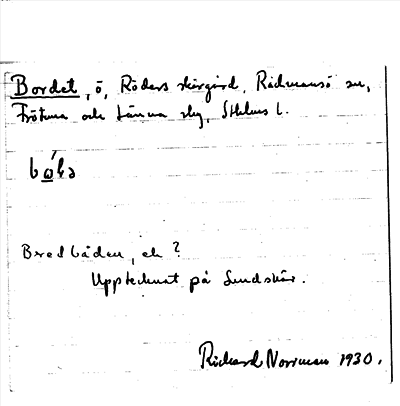 Bordet, ö, Röders skärgård, Rådmansö sn,
Frötuna och Länna skg, Sthlms l.
Bredbåden, el ?
Upptecknat på Lundskär.
Rickard Norrman 1930.